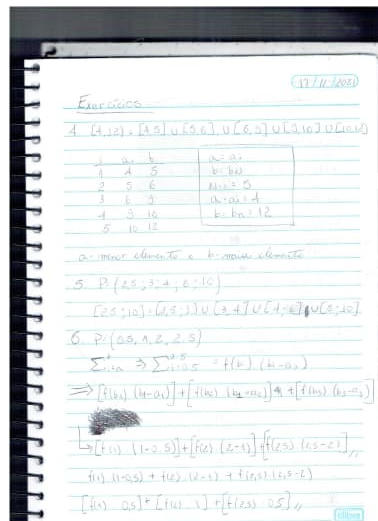 17/11/2021
Exercícios
4. [4,12) = [4,5] ∪ [5,6] ∪ [6,9] ∪ [9,10] ∪ [10,12]
i a b
1 4 5
2 5 6
3 6 9
4 9 10
5 10 12
a = ai
b = bi
N = i = 5
a = ai = 4
b = bn = 12
a = menor elemento e b = maior elemento
5. P = {2,5 ; 3 ; 4 ; 6 ; 10}
[2,5 ; 10] = [2,5 ; 3] ∪ [3, 4] ∪ [4 ; 6] ∪ [6 ; 10]
6. P = {0,5, 1, 2, 2,5}
⇒ [f(b1) (b1-a1)] + [f(b2) (b2-a2)] + [f(b3) (b3-a3)]
↳ [f(1) (1-0,5)] + [f(2) (2-1)] + [f(2,5) (2,5-2)] //
f(1) (1-0,5) + f(2) (2-1) + f(2,5) (2,5-2)
[f(1) 0,5] + [f(2) 1] + [f(2,5) 0,5] //